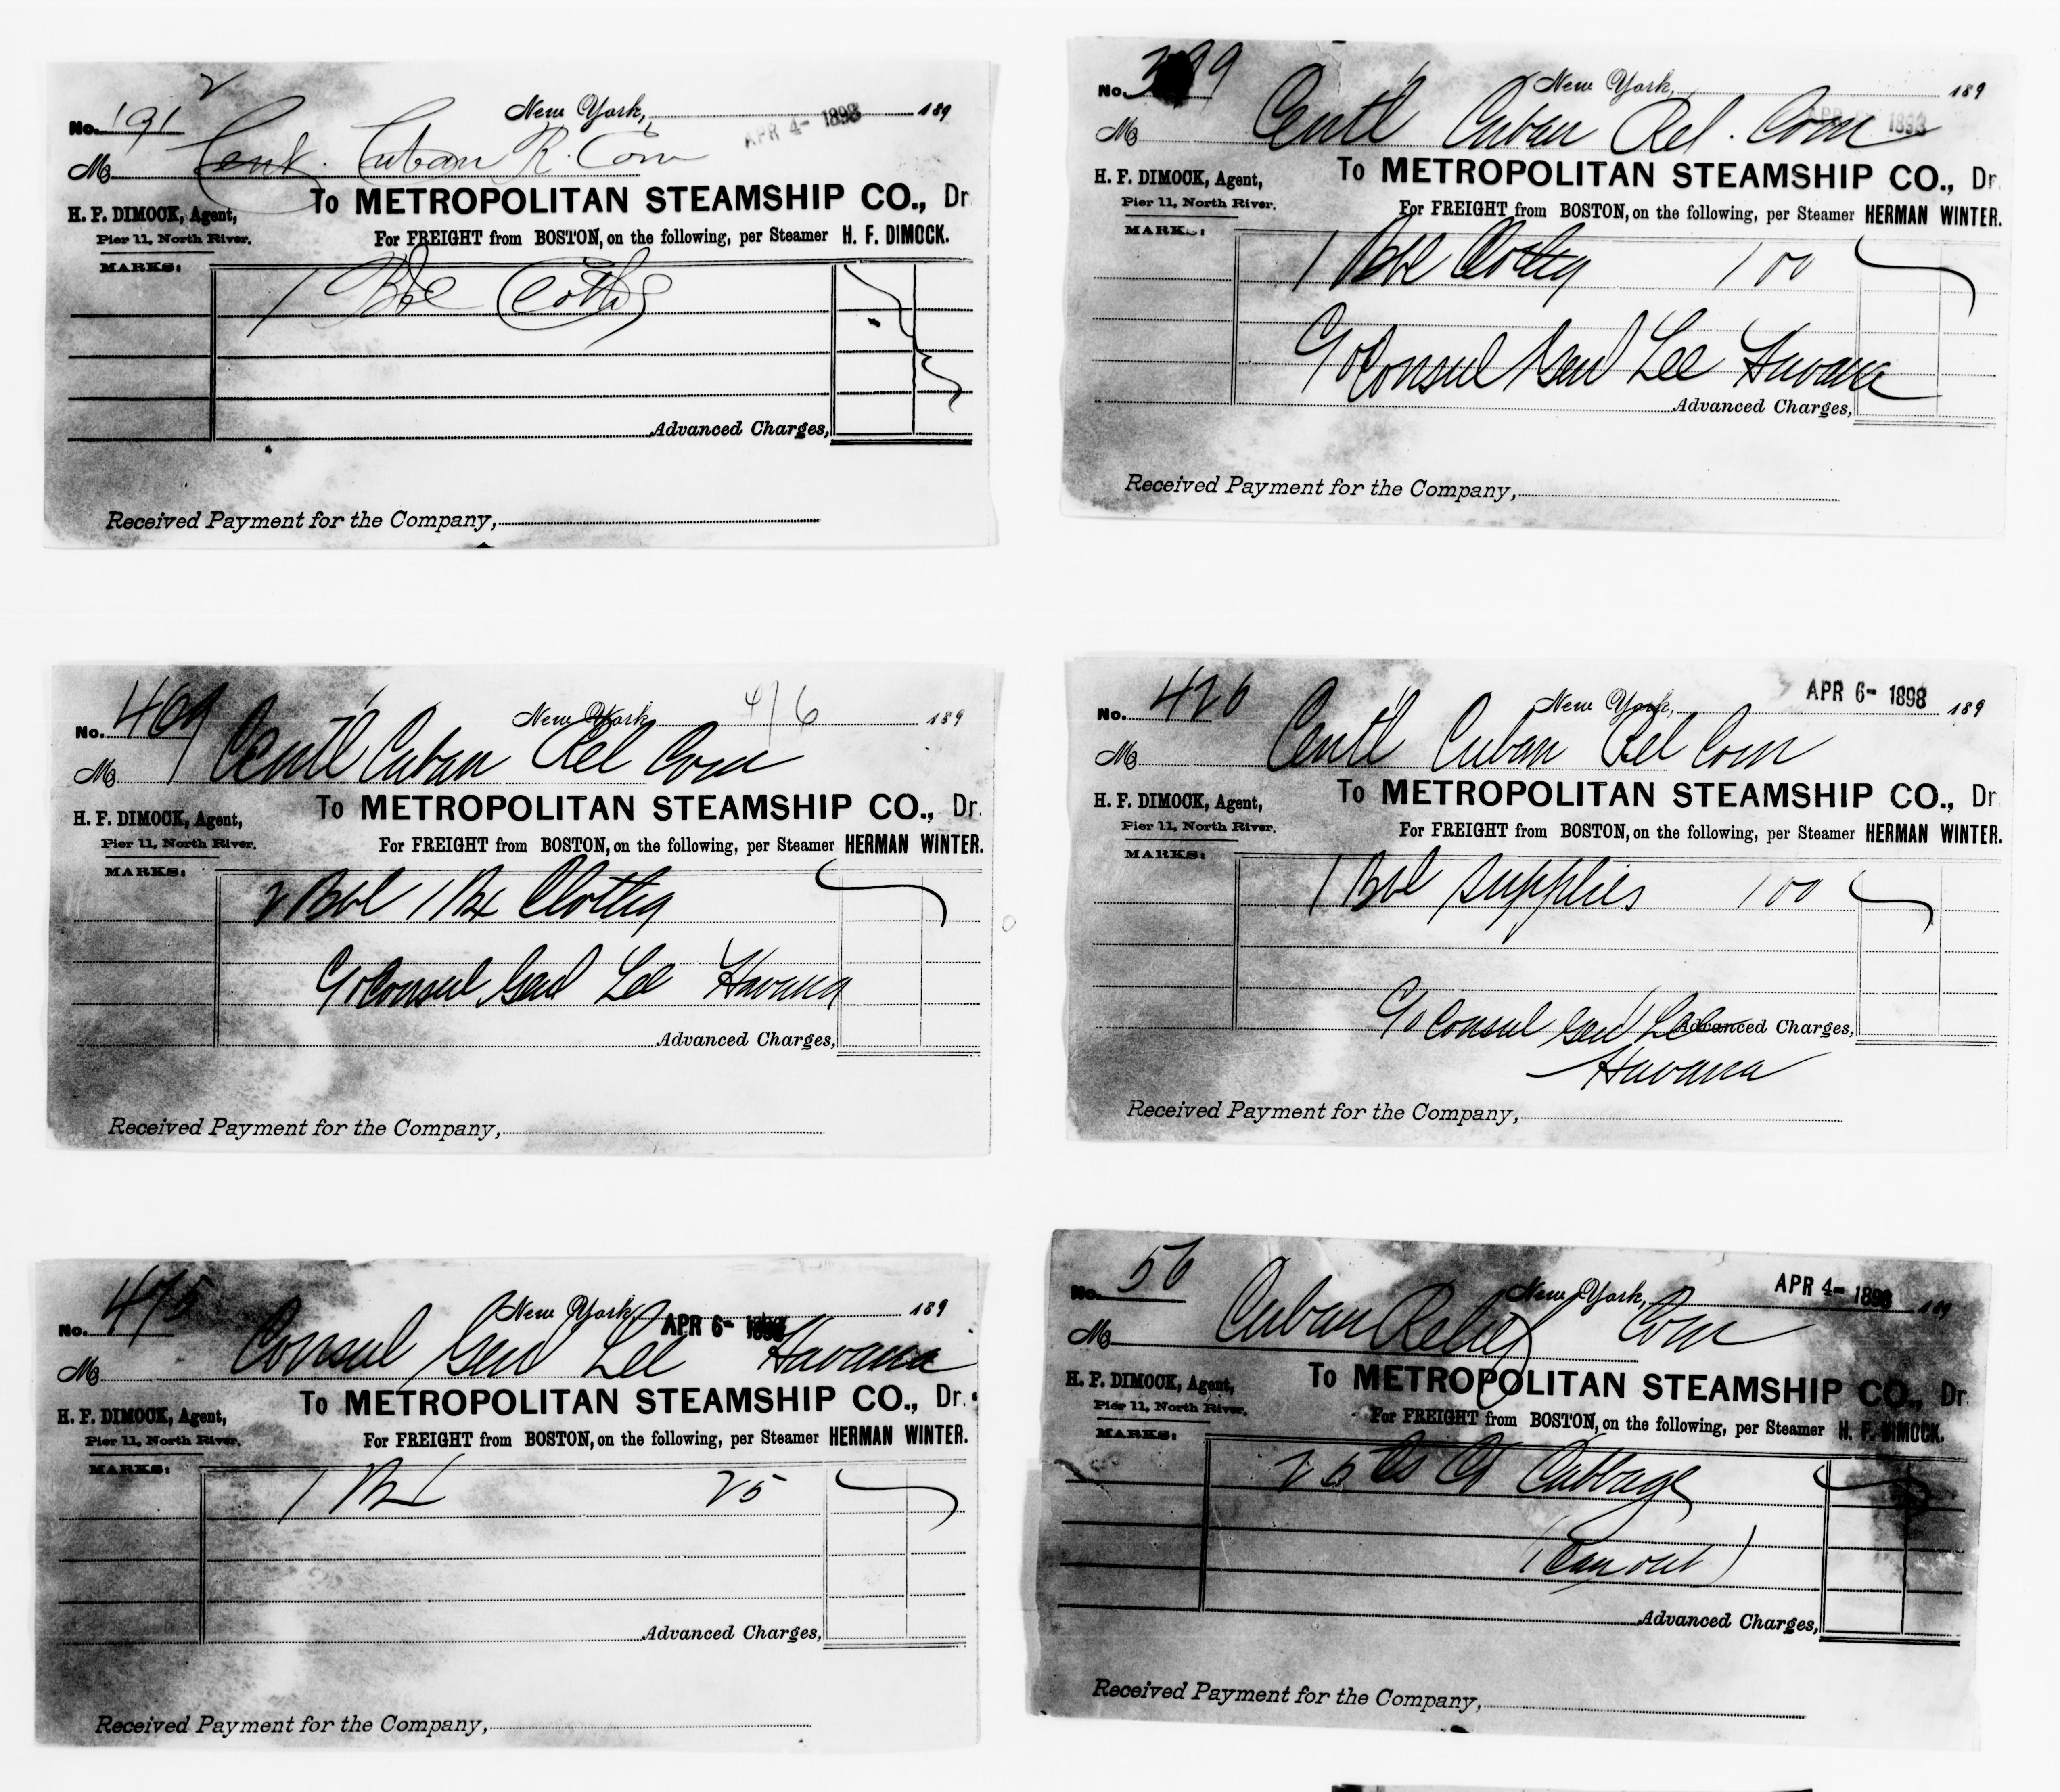 2
No. 191 New York, APR 4- 1898 189
M Cent. Cuban R. Com
To METROPOLITAN STEAMSHIP CO., Dr.
H. F. DIMOCK, Agent,
Pier 11, North River.
For FREIGHT from BOSTON, on the following, per Steamer H. F. DIMOCK.
MARKS:
1 Bbl Coths
Advanced Charges,
Received Payment for the Company,
No. 399 New York, APR 1898 189
M Centl Cuban Rel. Com
To METROPOLITAN STEAMSHIP CO., Dr.
H. F. DIMOCK, Agent,
Pier 11, North River.
For FREIGHT from BOSTON, on the following, per Steamer HERMAN WINTER.
MARKS:
1 Bbl Clothg 100
C/o Consul Genl Lee Havana
Advanced Charges,
Received Payment for the Company,
No. 409 New York, 4/6 189
M Centl Cuban Rel Com
To METROPOLITAN STEAMSHIP CO., Dr.
H. F. DIMOCK, Agent,
Pier 11, North River.
For FREIGHT from BOSTON, on the following, per Steamer HERMAN WINTER.
MARKS:
2 Bbl 1 Bx Clothg
C/o Consul Genl Lee Havana
Advanced Charges,
Received Payment for the Company,
No. 426 New York, APR 6- 1898 189
M Centl Cuban Rel Com
To METROPOLITAN STEAMSHIP CO., Dr.
H. F. DIMOCK, Agent,
Pier 11, North River.
For FREIGHT from BOSTON, on the following, per Steamer HERMAN WINTER.
MARKS:
1 Bbl Supplies 100
C/o Consul Genl Lee
Advanced Charges,
Havana
Received Payment for the Company,
No. 475 New York, APR 6- 1898 189
M Consul Genl Lee Havana
To METROPOLITAN STEAMSHIP CO., Dr.
H. F. DIMOCK, Agent,
Pier 11, North River.
For FREIGHT from BOSTON, on the following, per Steamer HERMAN WINTER.
MARKS:
1 Bx 25
Advanced Charges,
Received Payment for the Company,
No. 56 New York, APR 4- 1898 189
M Cuban Relief Com
To METROPOLITAN STEAMSHIP CO., Dr.
H. F. DIMOCK, Agent,
Pier 11, North River.
For FREIGHT from BOSTON, on the following, per Steamer H. F. DIMOCK.
MARKS:
25 Cs Cabbage
Advanced Charges,
Received Payment for the Company,